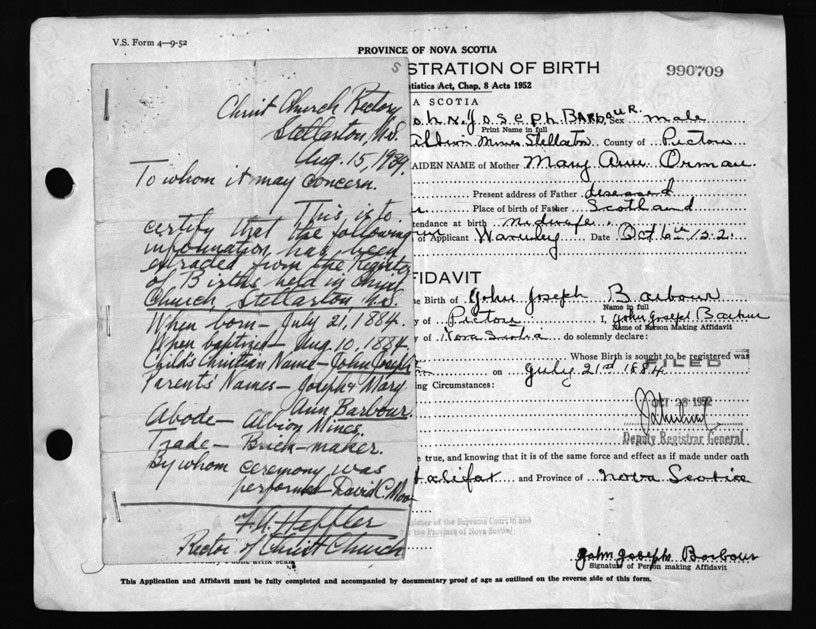 V.S. Form 4—9-52
PROVINCE OF NOVA SCOTIA
STRATION OF BIRTH
990709
tatistics Act, Chap. 8 Acts 1952
A SCOTIA
S
Christ Church Rectory
Stellarton, N.S.
Aug. 15, 1934.
To whom it may concern.
This is to
certify that the following
information has been
extracted from the Register
of Births held in Christ
Church, Stellarton N.S.
When born — July 21, 1884.
When baptized — Aug 10, 1884
Child's Christian Name — John Joseph
Parents Names — Joseph & Mary
Ann Barbour.
Abode — Albion Mines
Trade — Brick-maker.
By whom ceremony was
performed — David C. Moo
Rector of Christ Church
ohn Joseph BARBOUR. Sex male
Print Name in full
Albion Mines Stellarton County of Pictou
AIDEN NAME of Mother Mary Ann Orman
Present address of Father deceased
Place of birth of Father Scotland
ttendance at birth midwife
of Applicant Waverley Date Oct 6th 52
FFIDAVIT
e Birth of John Joseph Barbour
Name in full
y of Pictou I, John Joseph Barbour
Name of Person Making Affidavit
of Nova Scotia do solemnly declare:
Whose Birth is sought to be registered was
FILED
on July 21st 1884
ing Circumstances:
OCT 28 1952
Deputy Registrar General
e true, and knowing that it is of the same force and effect as if made under oath
Halifax and Province of Nova Scotia
ister of the Supreme Court in and
the Province of Nova Scotia
John Joseph Barbour
Signature of Person making Affidavit
This Application and Affidavit must be fully completed and accompanied by documentary proof of age as outlined on the reverse side of this form.